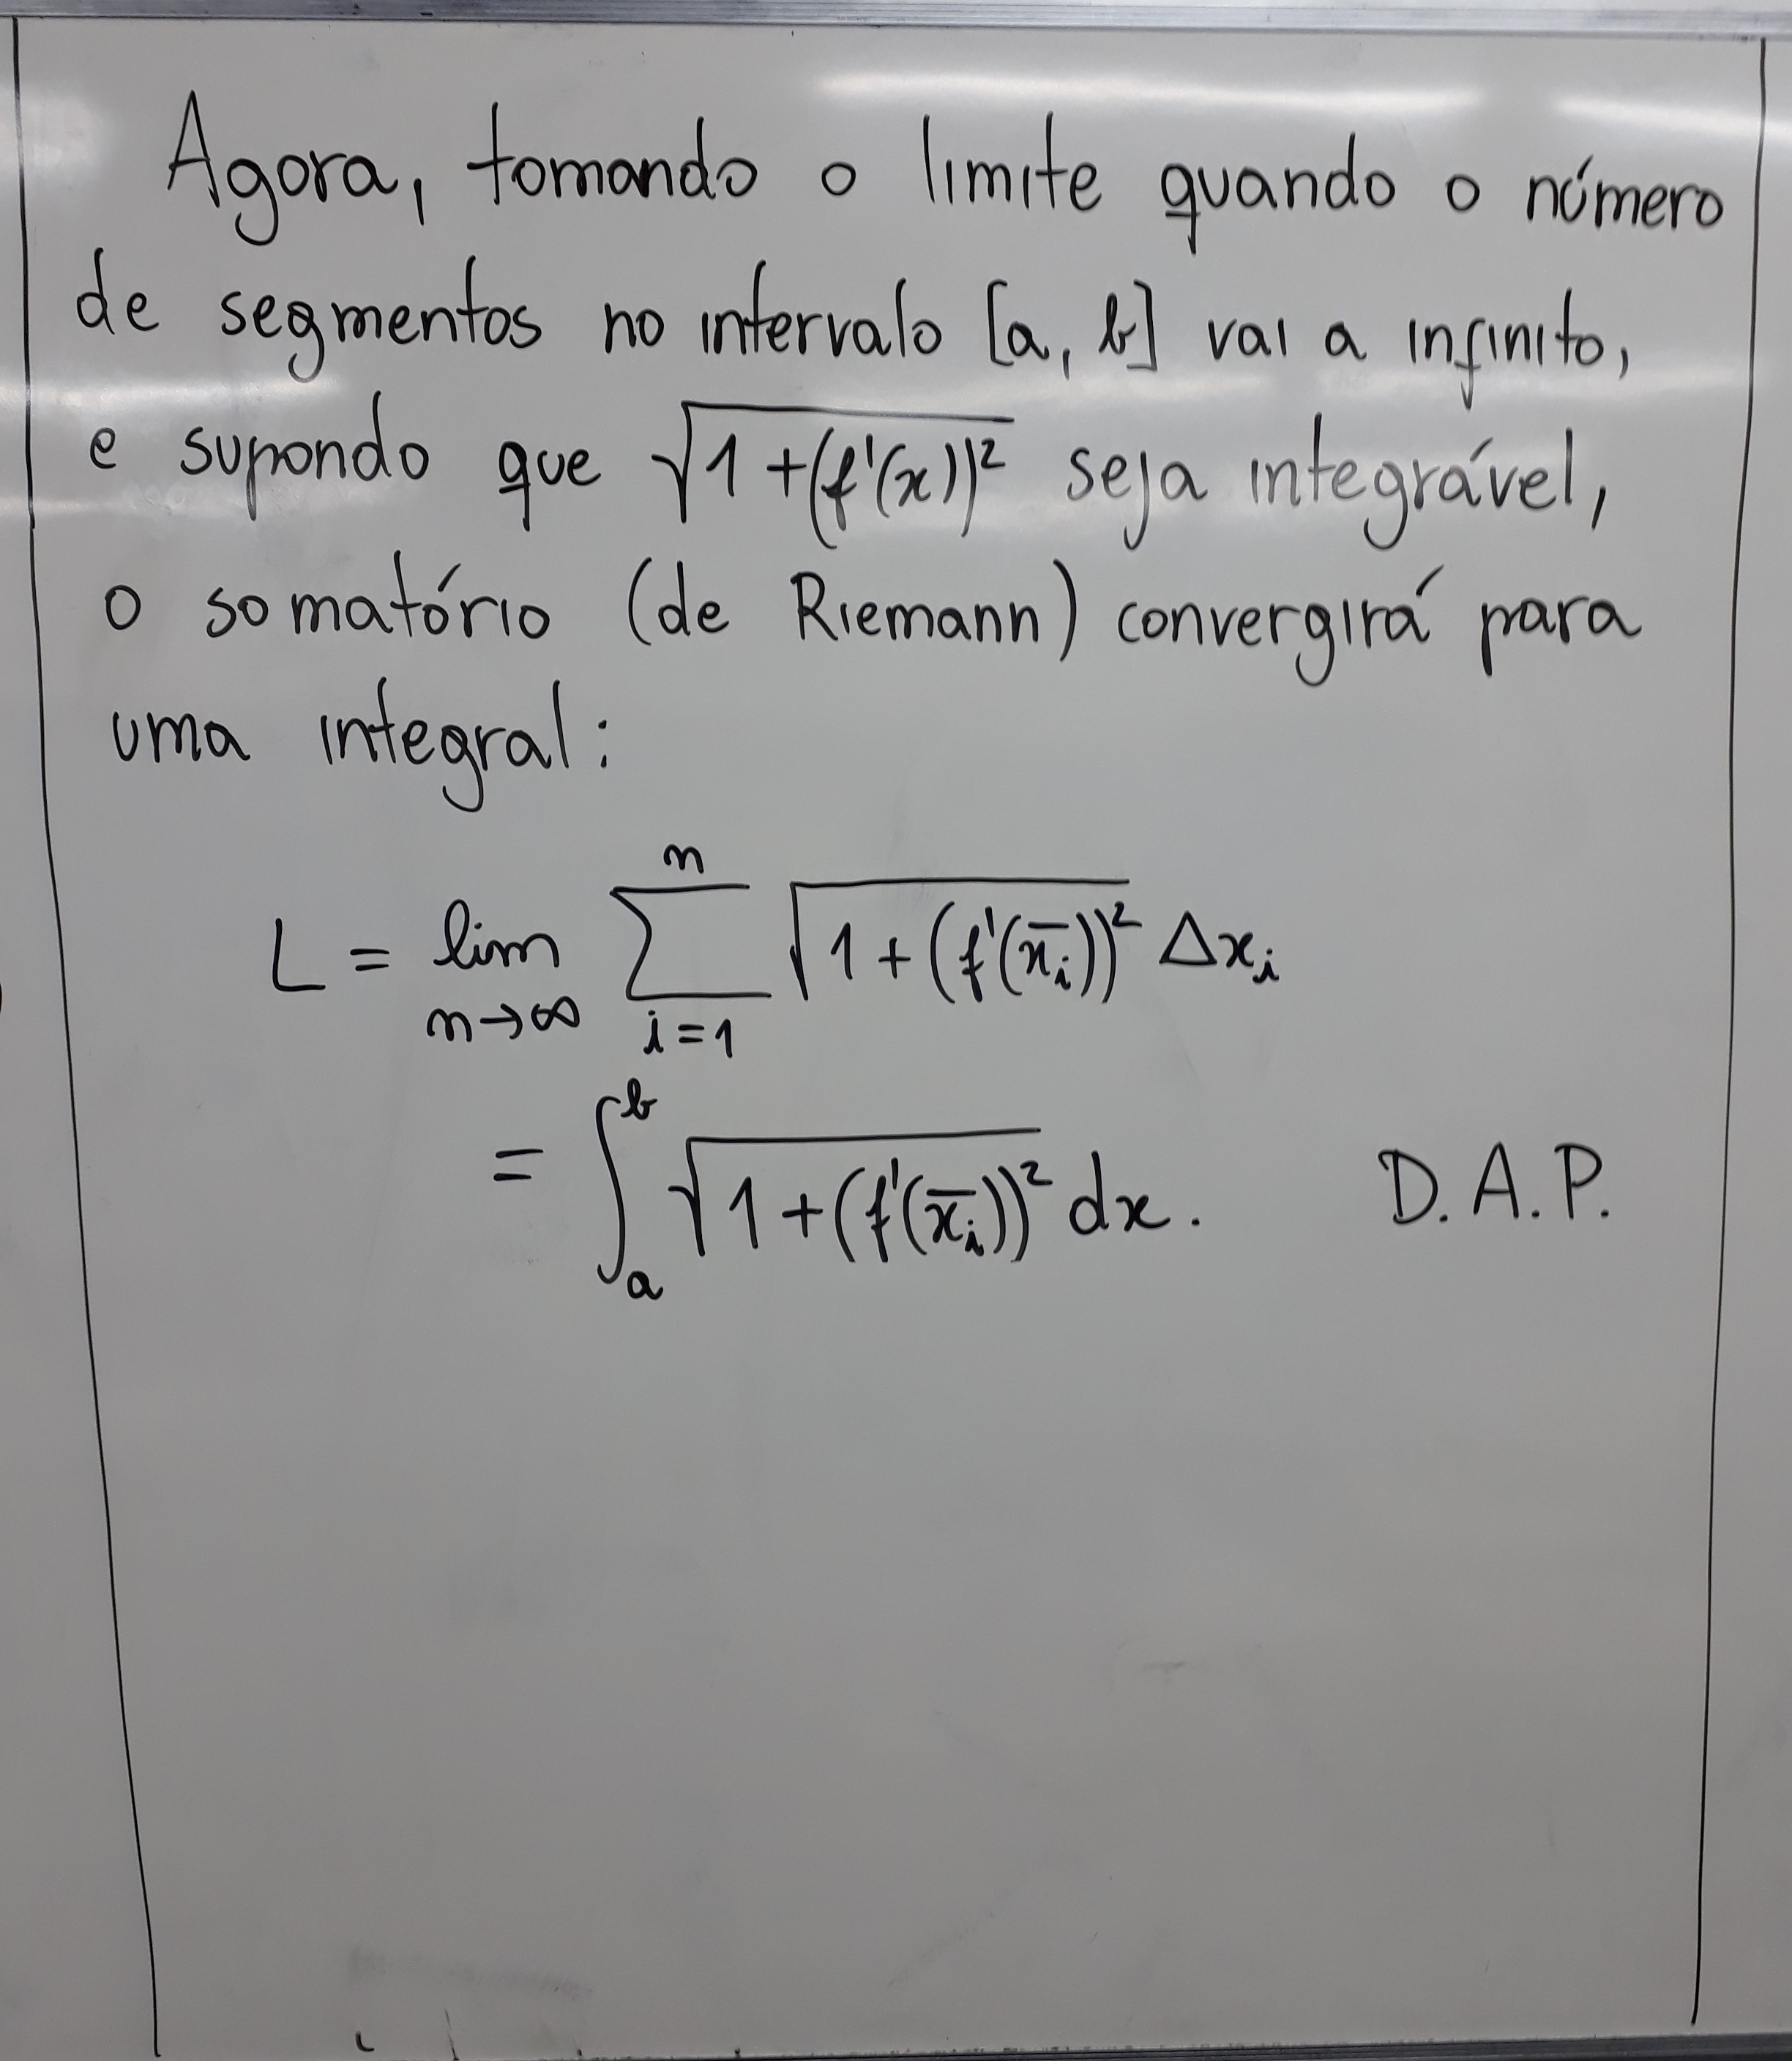 Agora, tomando o limite quando o número
de segmentos no intervalo [a, b] vai a infinito,
e supondo que √1+(f'(x))² seja integrável,
o somatório (de Riemann) convergirá para
uma integral:
L = lim_{n→∞} ∑_{i=1}^{n} √1+(f'(x̄ᵢ))² Δxᵢ
= ∫_a^b √1+(f'(x̄ᵢ))² dx. D.A.P.